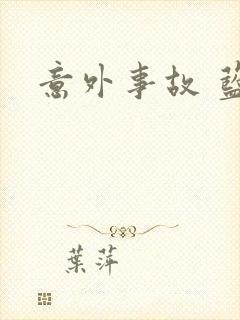 意外事故
葉萍